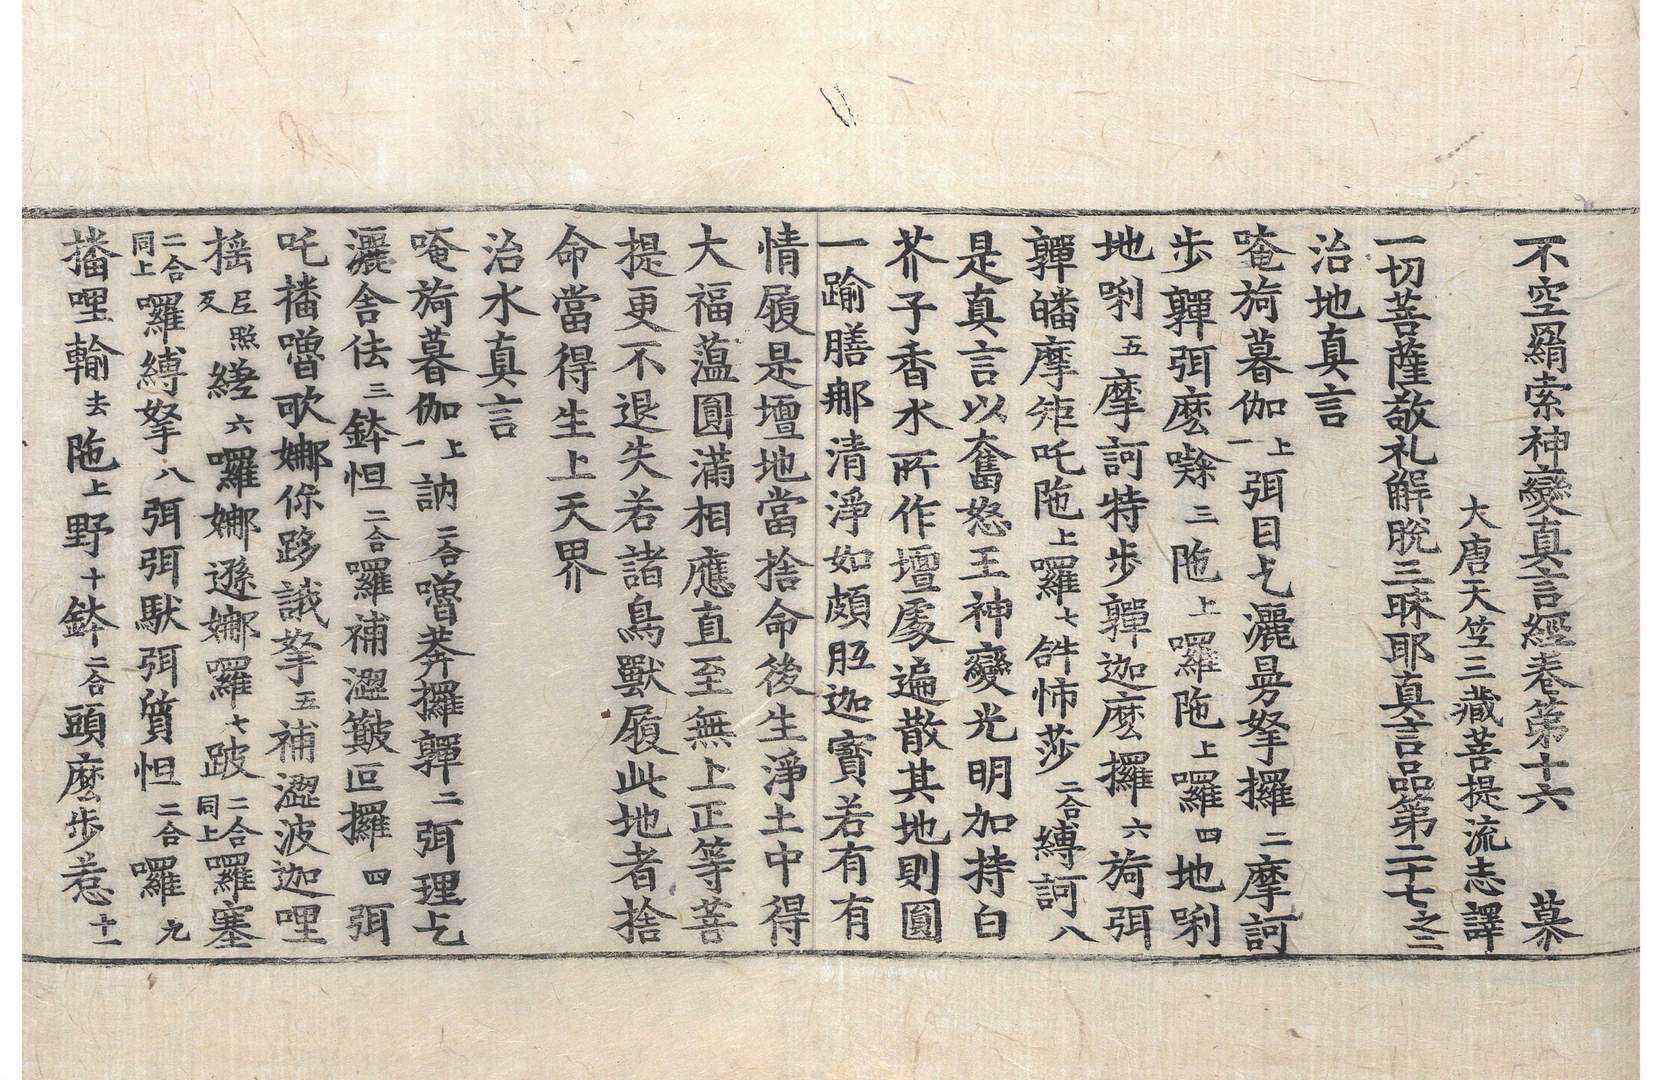 不空羂索神變真言經卷第十六 慕
大唐天竺三藏菩提流志譯
一切菩薩敬礼解脫三昧耶真言品第二十七之二
治地真言
唵旖暮伽上一弭目乞灑曷拏攞二摩訶
步䭾弭麽㗚三陁上囉陁上囉四地唎
地唎五摩訶特步䭾迦麽攞六旖弭
䭾皤摩矩吒陁上囉七䤈怖莎二合縛訶八
是真言以奮怒王神變光明加持白
芥子香水所作壇處遍散其地則圓
一踰膳那清淨如頗胝迦寶若有有
情履是壇地當捨命後生淨土中得
大福蘊圓滿相應直至無上正等菩
提更不退失若諸鳥獸履此地者捨
命當得生上天界
治水真言
唵旖暮伽上一訥二合嚕莾攞䭾二弭理乞
灑舍佉三鉢怛二合囉補澀簸叵攞四弭
吒播嚕歌娜你跢誐拏五補澀波迦哩
搖巨照反繞六囉娜遜娜囉七跛二合同上囉塞
二合同上囉縛拏八弭弭䭾弭質怛二合囉九
播哩輸去陁上野十鉢二合頭麽步惹十一